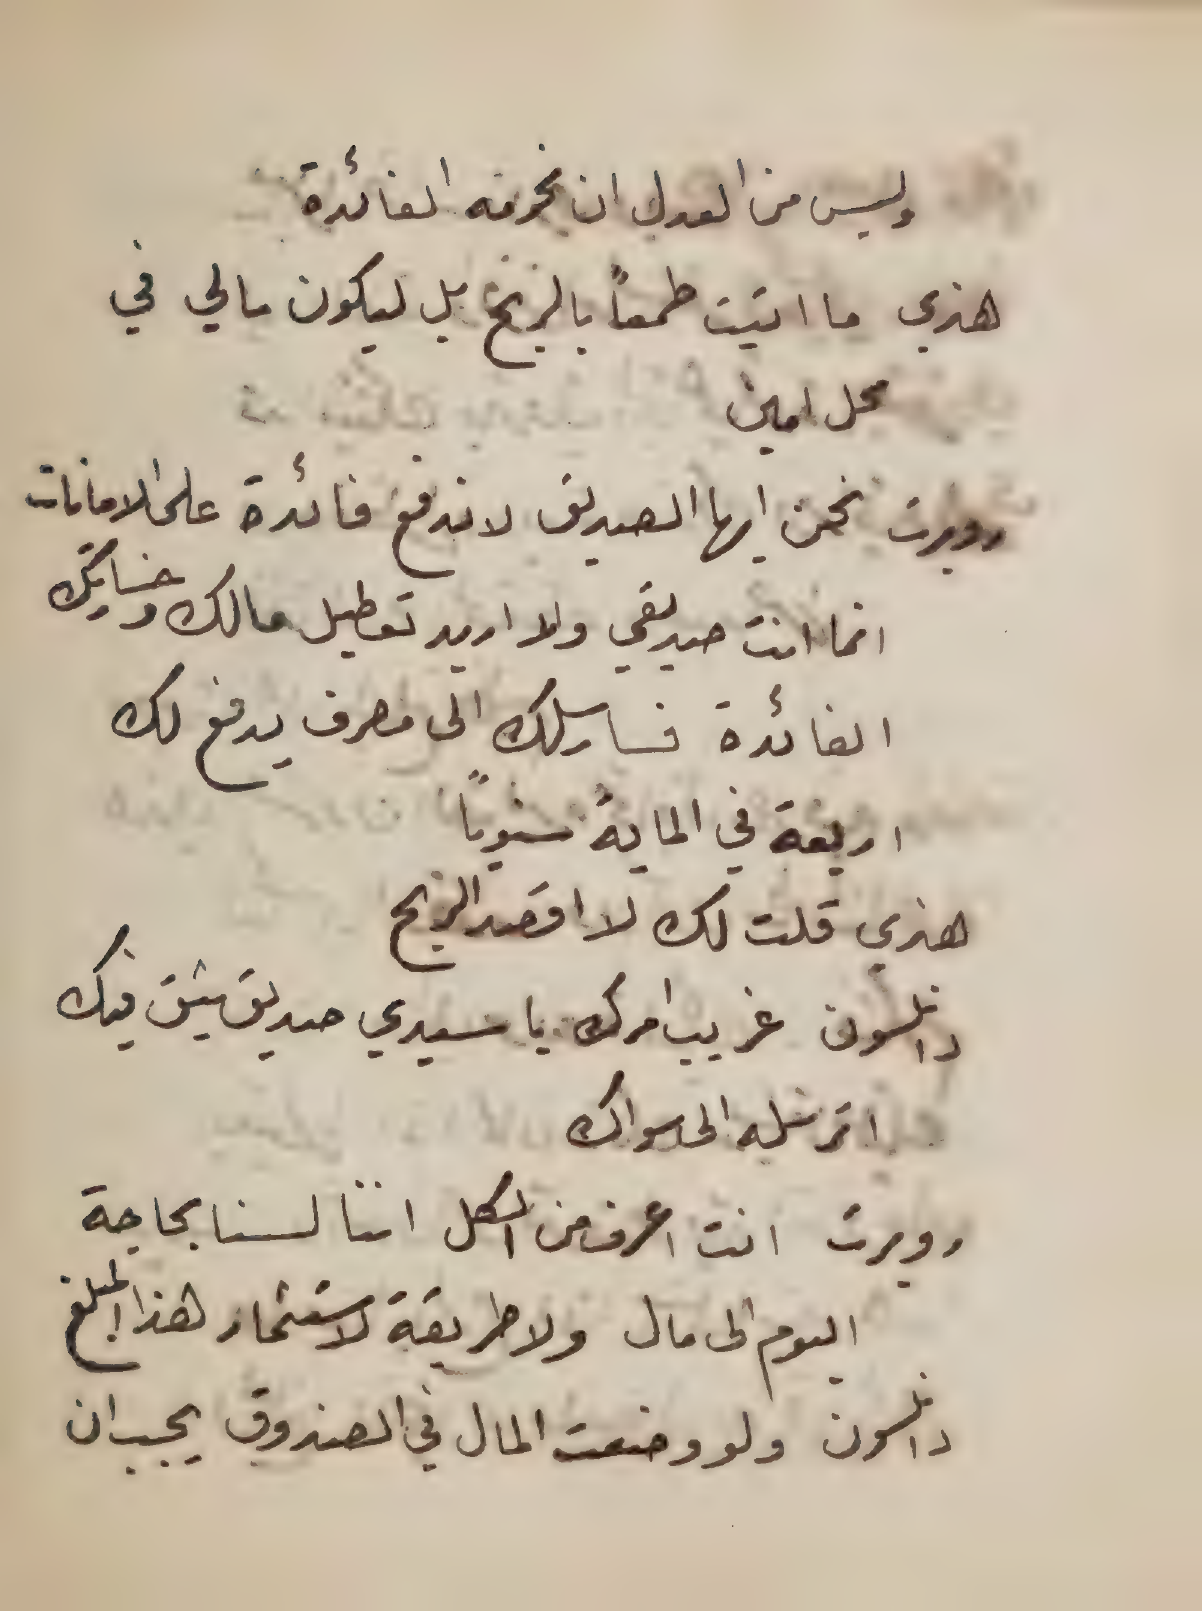 وليس من العدل ان نحرمه الفائدة
هنري ما اتيت طمعاً بالربح بل ليكون مالي في
محل امين
روبرت نحن ايها الصديق لا ندفع فائدة على الامانات
انما انت صديقي ولا اريد تعطيل مالك وخسارتك
الفائدة فسارسلك الى مصرف يدفع لك
اربعة في الماية سنوياً
هنري قلت لك لا اقصد الربح
دانلسون غريب امرك يا سيدي صديق يثق فيك
اترسله الى سواك
روبرت انت اعرف من الكل اننا لسنا بحاجة
اليوم الى مال ولا طريقة لاستثمار هذا المبلغ
دانلسون ولو وضعت المال في الصندوق يجب ان